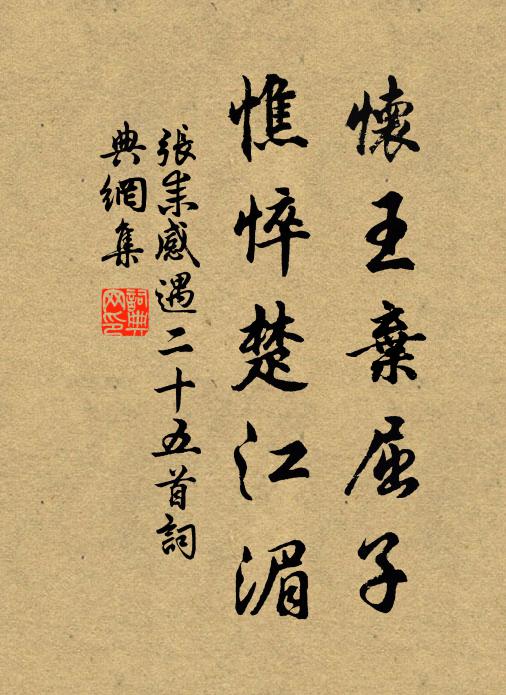 懷王棄屈子
憔悴楚江湄
張耒感遇二十五首詞
典網集
詞典
网印